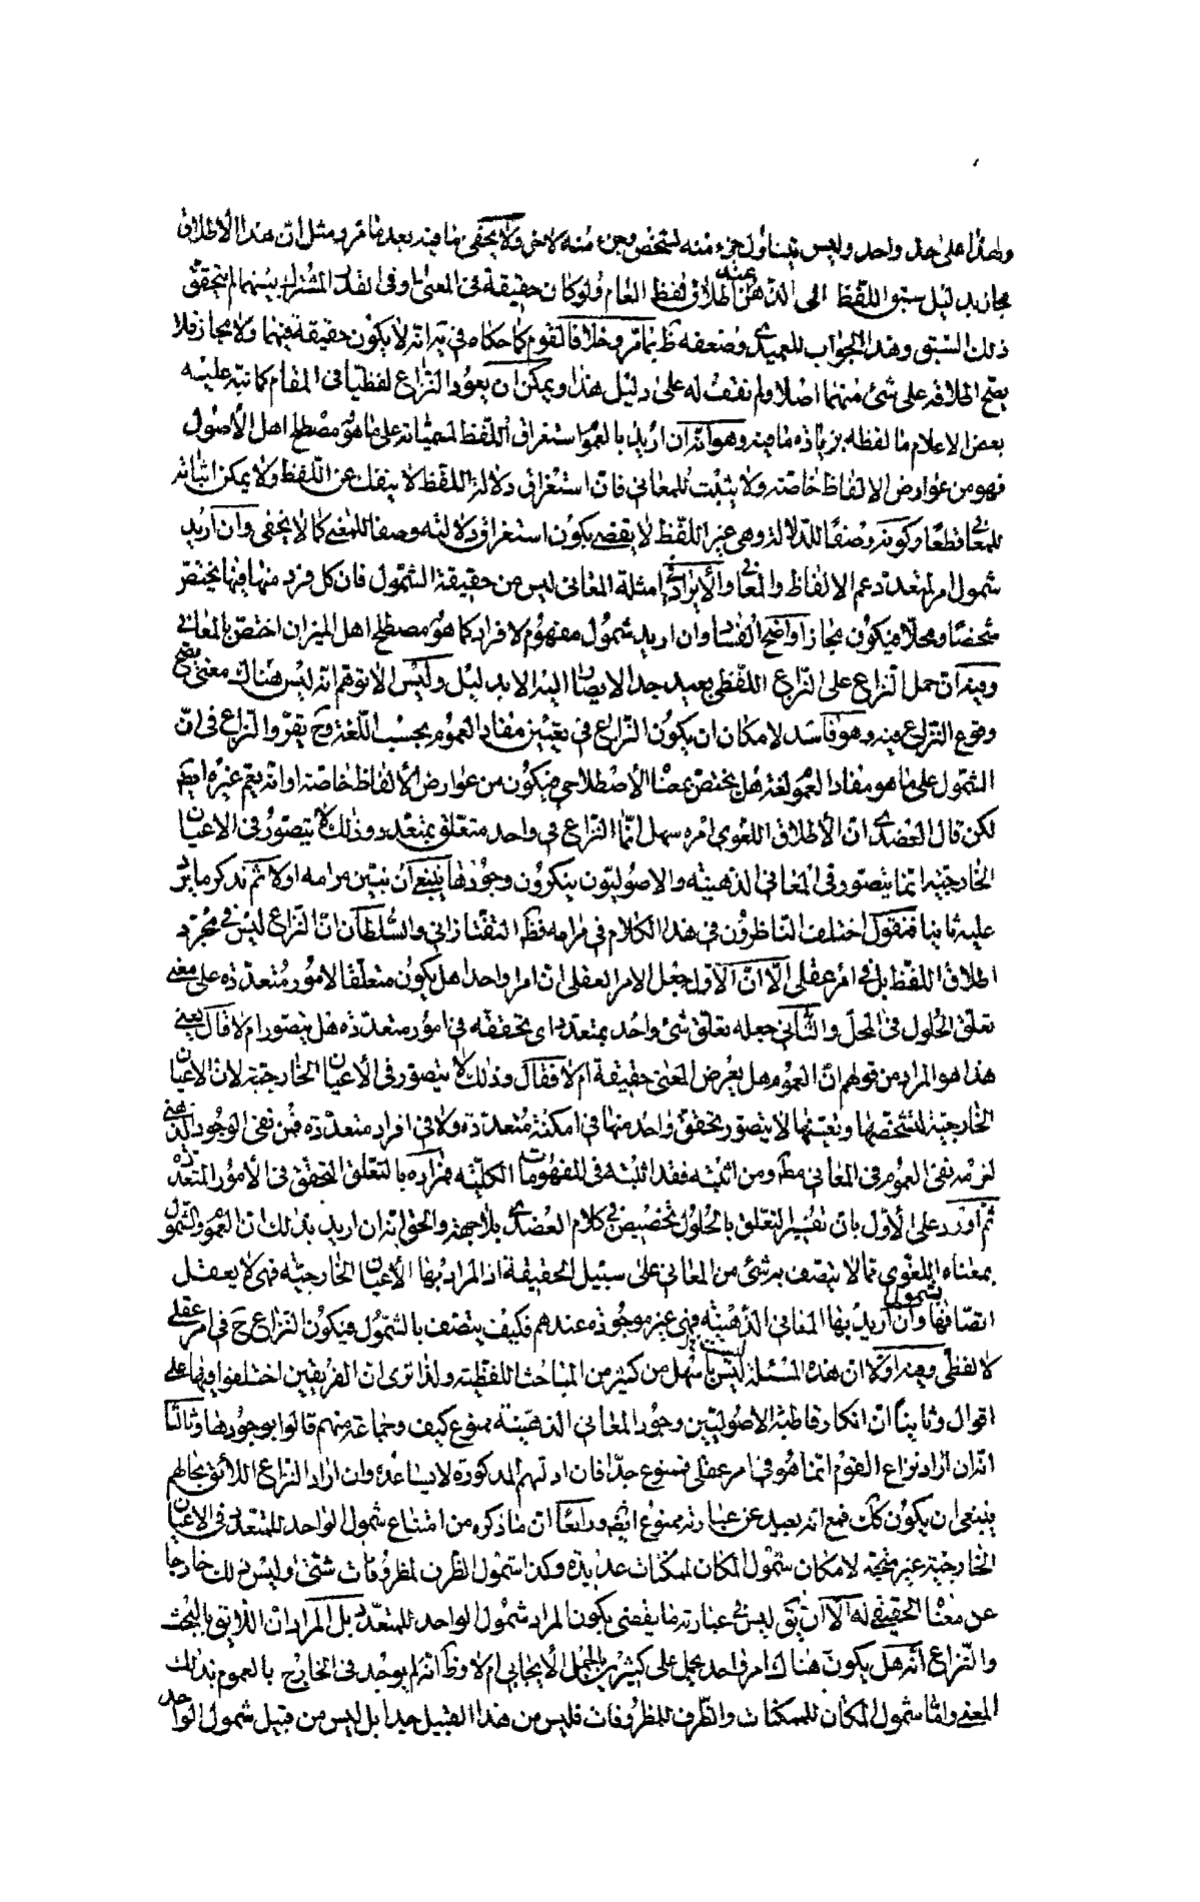 واحد على حد واحد وليس يتناول جزء منه لشخص وجزء منه لاخر ولا يخفى ما فيه بعد ما مر ومثل ان هذا الاطلاق
مجاز بدليل سبق اللفظ الى الذهن عند اطلاق لفظ العام ولو كان حقيقة فى المعنى او فى القدر المشترك بينهما لم يتحقق
ذلك السبق وهذا الجواب للعميدى وضعفه ظ بما مر وخلافا لقوم كما حكاه فى يه انه لا يكون حقيقة فيهما ولا مجاز فلا
يصح اطلاقه على شئ منهما اصلا ولم نقف له على دليل هذا ويمكن ان يعود النزاع لفظيا فى المقام كما نبه عليه
بعض الاعلام ما لفظه بزيادة ما فيه وهو انه ان اريد بالعموم استغراق اللفظ لمسمياته على ما هو مصطلح اهل الاصول
فهو من عوارض الالفاظ خاصة ولا يثبت للمعانى فان استغراق دلالة اللفظ لا ينفك عن اللفظ ولا يمكن اثباته
للمعانى قطعا وكونه وصفا للدلالة وهى غير اللفظ لا يقضى بكون استغراق دلالته وصفا للمعنى كما لا يخفى وان اريد
شمول امر لمتعدد عم الالفاظ والمعانى و امثلة المعانى ليس من حقيقة الشمول فان كل فرد منها فيها يختص
شخصا ومحلا فيكون مجازا واضح الفساد وان اريد شمول مفهوم لافراد كما هو مصطلح اهل الميزان اختص بالمعانى
وفيه ان حمل النزاع على النزاع اللفظى بعيد جدا لا يصار اليه الا بدليل وليس الا توهم انه ليس هناك معنى يصح
وقوع النزاع فيه وهو فاسد لامكان ان يكون النزاع فى تعيين مفاد العموم بحسب اللغة وح يقرر النزاع فى ان
الشمول على ما هو مفاد العموم لغة هل يختص بمعناه الاصطلاحى فيكون من عوارض الالفاظ خاصة او انه يعم غيره ايضا
لكن قال العضدى ان الاطلاق اللغوى امره سهل انما النزاع فى واحد متعلق بمتعدد وذلك لا يتصور فى الاعيان
الخارجية انما يتصور فى المعانى الذهنية والاصوليون ينكرون وجودها ينبغى ان نبين مرامه اولا ثم نذكر ما يرد
عليه ثانيا فنقول اختلف الناظرون فى هذا الكلام فى مرامه فظ التفتازانى والسلطان ان النزاع ليس فى مجرد
اطلاق اللفظ بل فى امر عقلى الا ان الاول جعل الامر العقلى ان امرا واحدا هل يكون متعلقا لامور متعددة على معنى
تعلق الحلول فى المحل والثانى جعله تعلق شئ واحد بمتعدد اى تحققه فى امور متعددة هل يتصور ام لا قال يعنى
هذا هو المراد من قولهم ان العموم هل يعرض المعنى حقيقة ام لا فقال وذلك لا يتصور فى الاعيان الخارجية لان الاعيان
الخارجية لتشخصها وتعينها لا يتصور تحقق واحد منها فى امكنة متعددة ولا فى افراد متعددة فمن نفى الوجود الذهنى
لزمه نفى العموم فى المعانى مط ومن اثبته فقد اثبته فى المفهومات الكلية فمراده بالتعلق التحقق فى الامور المتعددة
ثم اورد على الاول بان تفسير التعلق بالحلول تخصيص فى كلام العضدى بلا جهة والحق انه ان اريد بذلك ان العموم والشمول
بمعناه اللغوى مما لا يتصف به شئ من المعانى على سبيل الحقيقة اذ المراد بها الاعيان الخارجية فهى لا يعقل
اتصافها بشمول وان اريد بها المعانى الذهنية فهى غير موجودة عندهم فكيف يتصف بالشمول فيكون النزاع ح فى امر عقلى
لا لفظى وفيه اولا ان هذه المسئلة ليس باسهل من كثير من المباحث اللفظية ولذا ترى ان الفريقين اختلفوا فيها على
اقوال وثانيا ان انكار قاطبة الاصوليين وجود المعانى الذهنية ممنوع كيف وجماعة منهم قالوا بوجودها وثالثا
انه ان اراد نزاع القوم انما هو فى امر عقلى فممنوع جدا فان ادلتهم المذكورة لا يساعده وان اراد النزاع اللائق بحالهم
ينبغى ان يكون كك فمع انه بعيد عن عبارته ممنوع ايضا ورابعا ان ما ذكره من امتناع شمول الواحد للمتعدد فى الاعيان
الخارجية غير متجه لامكان شمول المكان لمكنات عديدة وكذا شمول الظرف لمظروفات شتى وليس ذلك خارجا
عن معناه الحقيقى له الا ان يق ليس فى عبارته ما يقضى بكون المراد شمول الواحد للمتعدد بل المراد ان اللايق بالبحث
والنزاع انه هل يكون هناك امر واحد يحمل على كثيرين بالحمل الايجابى ام لا وظ انه لم يوجد فى الخارج بالعموم بذلك
المعنى واما شمول المكان للمكنات والظرف للمظروفات فليس من هذا القبيل جدا بل ليس من قبيل شمول الواحد